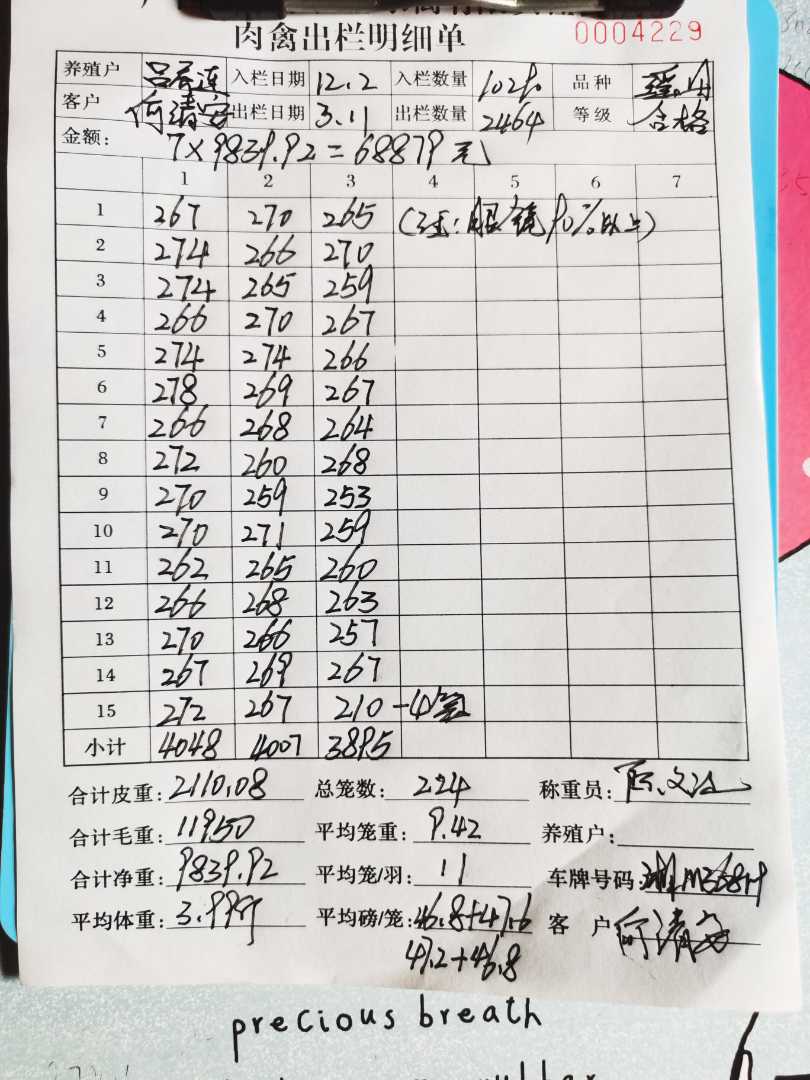 肉禽出栏明细单 0004229
养殖户 入栏日期 12.2 入栏数量 品种
客户 何清安 出栏日期 3.11 出栏数量 2464 等级 合格
金额: 7×9839.92=68879元
1 2 3 4 5 6 7
1 267 270 265 (注:眼镜90%以上)
2 274 266 270
3 274 265 259
4 266 270 267
5 274 274 266
6 278 269 267
7 266 268 264
8 272 260 268
9 270 259 253
10 270 271 259
11 262 265 260
12 266 268 263
13 270 266 257
14 267 269 267
15 272 267 210 -4/笼
小计 4048 4007 3895
合计皮重: 2110.08 总笼数: 224 称重员:
合计毛重: 11950 平均笼重: 9.42 养殖户:
合计净重: 9839.92 平均笼/羽: 11 车牌号码:
平均体重: 3.99斤 平均磅/笼: 46.8+47.6 客户 何清安
47.2+46.8
precious breath